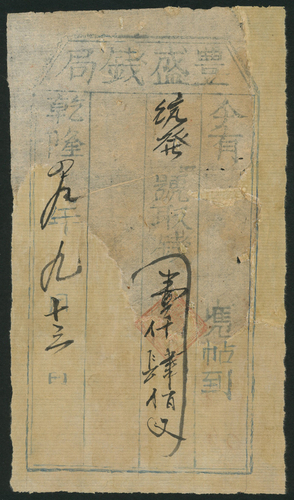 豐盛錢局
今有
憑帖到
統發號取錢
壹仟肆佰文
乾隆 年九月十三日